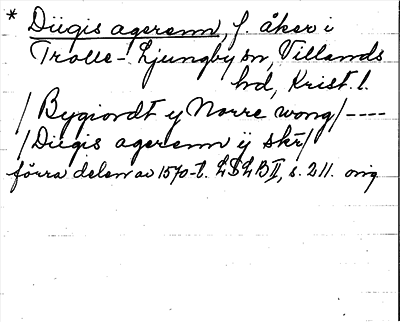 * Dügis agerenn, f. åker i
Trolle-Ljungby sn, Villands
hd, Krist. l.
/ Bygiordt y Norre wong/----
/Dügis agerenn ÿ skr/
förra delen av 1570-t. LSLB II, s. 211. orig